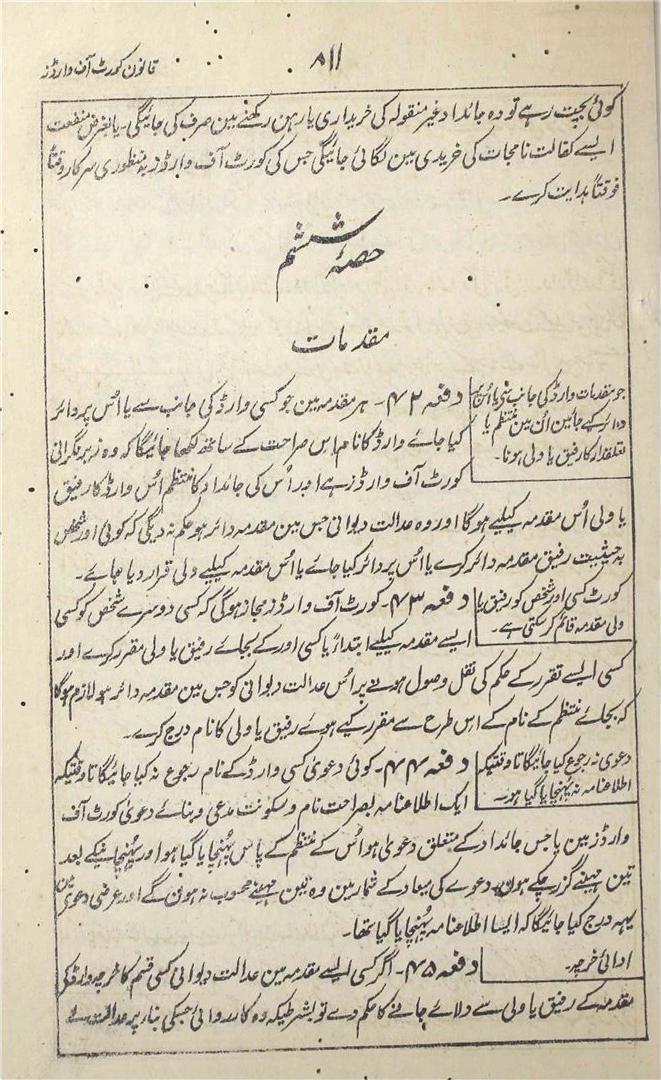 قانون کورٹ آف وارڈز
۸۱۱
کوئی بچت رہے تو وہ جائداد غیر منقولہ کی خریداری یا رہن رکھنے مین صرف کی جائیگی۔ یا بغرض منفعت
ایسے کفالت نامجات کی خریدی مین لگائی جائیگی جس کی کورٹ آف وارڈز بہ منظوری سرکار وقتاً
فوقتاً ہدایت کرے۔
حصۂ ششم
مقدمات
جو مقدمات وارڈ کی جانب سے یا اُس پر
دائر کیے جائین اُن مین منتظم یا
تعلقدار کا رفیق یا ولی ہونا۔
دفعہ ۴۲۔ ہر مقدمہ مین جو کسی وارڈ کی جانب سے یا اُس پر دائر
کیا جائے وارڈ کا نام اس صراحت کے ساتھ لکھا جائیگا کہ وہ زیر نگرانی
کورٹ آف وارڈز ہے اور اُس کی جائداد کا منتظم اُس وارڈ کا رفیق
یا ولی اُس مقدمہ کیلیے ہوگا اور وہ عدالت دیوانی جس مین مقدمہ دائر ہو حکم نہ دیگی کہ کوئی اور شخص
بہ حیثیت رفیق مقدمہ دائر کرے یا اُس پر دائر کیا جائے یا اُس مقدمہ کیلیے ولی قرار دیا جائے۔
کورٹ کسی اور شخص کو رفیق یا
ولی مقدمہ قائم کر سکتی ہے۔
دفعہ ۴۳۔ کورٹ آف وارڈز مجاز ہوگی کہ کسی دوسرے شخص کو کسی
ایسے مقدمہ کیلیے ابتداءً یا کسی اور کے بجائے رفیق یا ولی مقرر کرے اور
کسی ایسے تقرر کے حکم کی نقل وصول ہونے پر اُس عدالت دیوانی کو جس مین مقدمہ دائر ہو لازم ہوگا
کہ بجائے منتظم کے نام کے اس طرح سے مقرر کیے ہوئے رفیق یا ولی کا نام درج کرے۔
دعویٰ نہ رجوع کیا جائیگا تا وقتیکہ
اطلاعنامہ نہ پہنچایا گیا ہو۔
دفعہ ۴۴۔ کوئی دعویٰ کسی وارڈ کے نام رجوع نہ کیا جائیگا تا وقتیکہ
ایک اطلاعنامہ بصراحت نام و سکونت مدعی و بنائے دعویٰ کورٹ آف
وارڈز مین یا جس جائداد کے متعلق دعویٰ ہو اُس کے منتظم کے پاس پہنچایا گیا ہو اور پہنچانیکے بعد
تین مہینے گزر چکے ہون۔ دعوے کی میعاد کے شمار مین وہ تین مہینے محسوب نہ ہون گے اور عرضی دعویٰ مین
یہہ درج کیا جائیگا کہ ایسا اطلاعنامہ پہنچایا گیا تھا۔
ادائی خرچہ۔
دفعہ ۴۵۔ اگر کسی ایسے مقدمہ مین عدالت دیوانی کسی قسم کا خرچہ وارڈ کی
مقدمہ کے رفیق یا ولی سے دلائے جانے کا حکم دے تو بشرطیکہ وہ کارروائی جسکی بنا پر عدالت نے